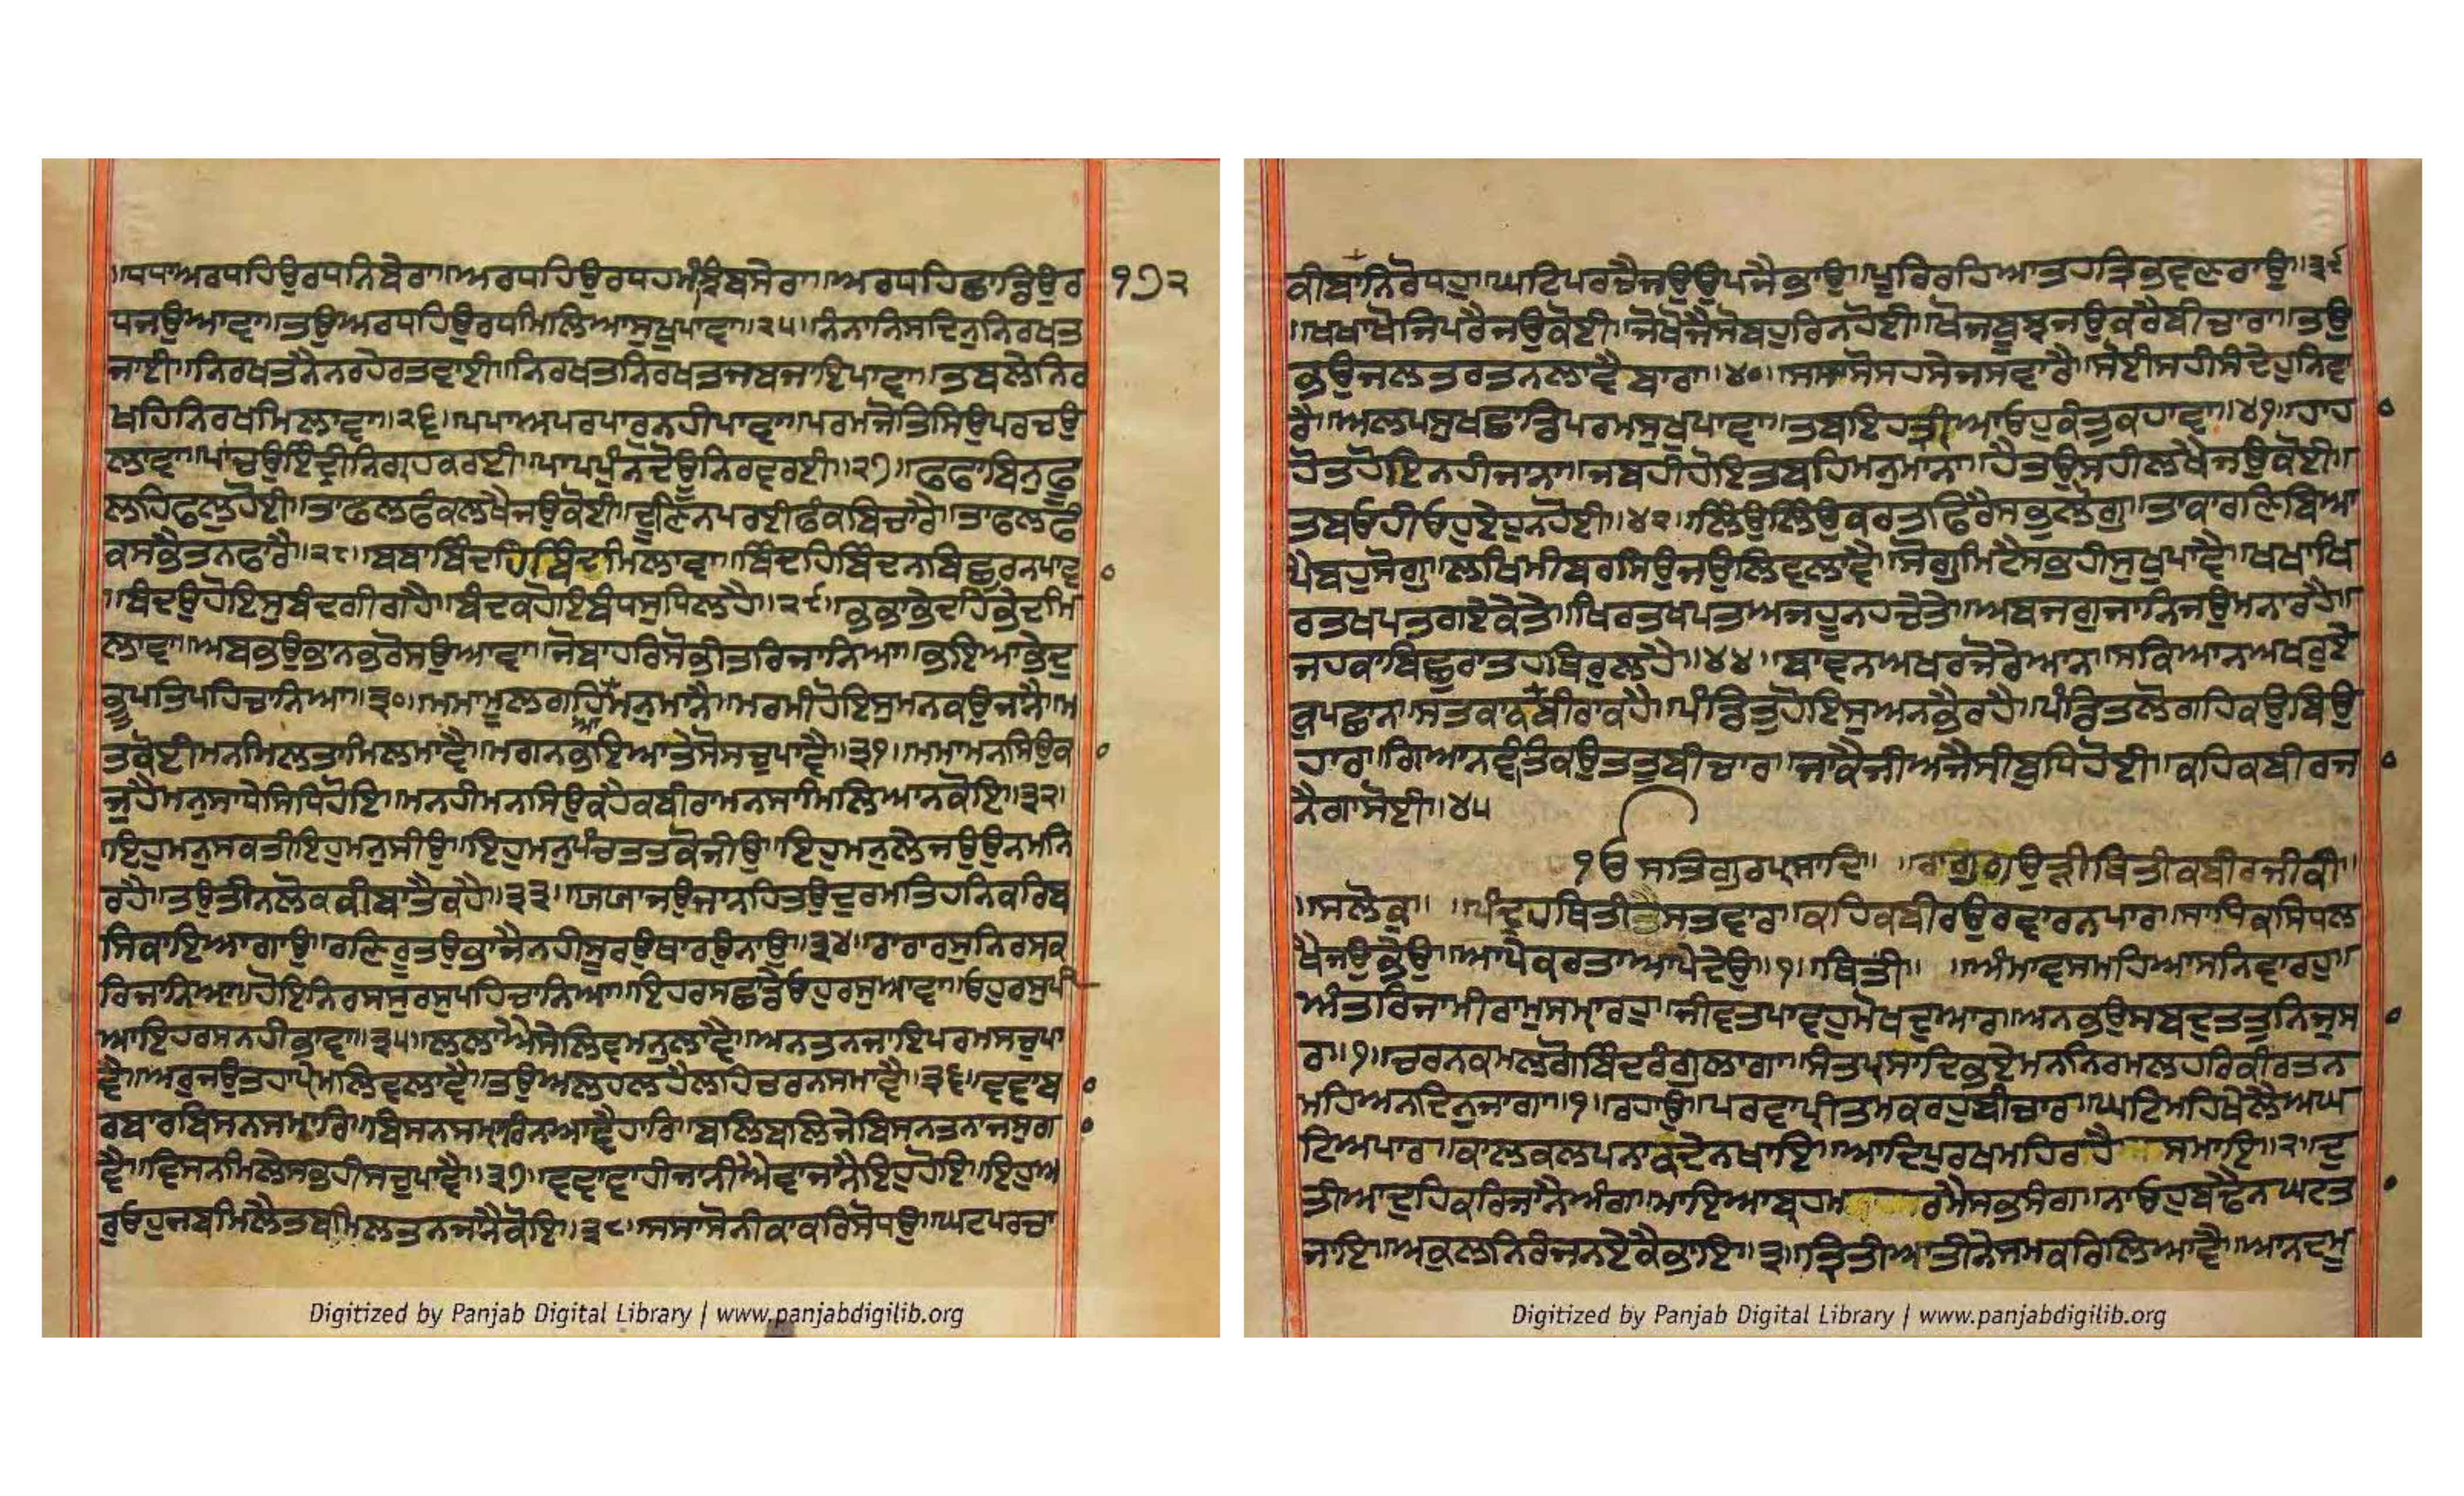 ॥ਧਧਾਅਰਧਹਿਉਰਧਨਿਬੇਰਾ॥ਅਰਧਹਿਉਰਧਹਮੰਝਿਬਸੇਰਾ॥ਅਰਧਹਿਛਾਡਿਉਰ
੧੭੨
ਧਜਉਆਵਾ॥ਤਉਅਰਧਹਿਉਰਧਮਿਲਿਆਸੁਖਪਾਵਾ॥੨੫॥ਨੰਨਾਨਿਸਦਿਨੁਨਿਰਖਤ
ਜਾਈ॥ਨਿਰਖਤਨੈਨਰਹੇਰਤਵਾਈ॥ਨਿਰਖਤਨਿਰਖਤਜਬਜਾਇਪਾਵਾ॥ਤਬਲੇਨਿਰ
ਖਹਿਨਿਰਖਮਿਲਾਵਾ॥੨੬॥ਪਪਾਅਪਰਪਾਰੁਨਹੀਪਾਵਾ॥ਪਰਮਜੋਤਿਸਿਉਪਰਚਉ
ਲਾਵਾ॥ਪਾਂਚਉਇੰਦ੍ਰੀਨਿਗ੍ਰਹਕਰਈ॥ਪਾਪਪੁੰਨਦੋਊਨਿਰਵਰਈ॥੨੭॥ਫਫਾਬਿਨੁਫੂ
ਲਹਿਫਲੁਹੋਈ॥ਤਾਫਲਫੰਕਲਖੈਜਉਕੋਈ॥ਦੂਣਿਨਪਰਈਫੰਕਬਿਚਾਰੈ॥ਤਾਫਲਫੰ
ਕਸਭੈਤਨਫਾਰੈ॥੨੮॥ਬਬਾਬਿੰਦਹਿਬਿੰਦਮਿਲਾਵਾ॥ਬਿੰਦਹਿਬਿੰਦਨਬਿਛੁਰਨਪਾਵ
॥ਬੰਦਉਹੋਇਸੁਬੰਦਗੀਗਹੈ॥ਬੰਦਕਹੋਇਬੰਧਸੁਧਿਲਹੈ॥੨੯॥ਭਭਾਭੇਦਹਿਭੇਦਮਿ
ਲਾਵਾ॥ਅਬਭਉਭਾਨਭਰੋਸਉਆਵਾ॥ਜੋਬਾਹਰਿਸੋਭੀਤਰਿਜਾਨਿਆ॥ਭਇਆਭੇਦੁ
ਭੂਪਤਿਪਹਿਚਾਨਿਆ॥੩੦॥ਮਮਾਮੂਲਗਹਿਆਮਨੁਮਾਨੈ॥ਮਰਮੀਹੋਇਸੁਮਨਕਉਜਾਨੈ॥ਮ
ਤਕੋਈਮਨਮਿਲਤਾਮਿਲਮਾਵੈ॥ਮਗਨਭਇਆਤੇਸੋਸਚੁਪਾਵੈ॥੩੧॥ਮਮਾਮਨਸਿਉਕ
ਜੁਹੈਮਨੁਸਾਧੇਸਿਧਿਹੋਇ॥ਮਨਹੀਮਨਸਿਉਕਹੈਕਬੀਰਾਮਨਸਾਮਿਲਿਆਨਕੋਇ॥੩੨॥
ਇਹੁਮਨੁਸਕਤੀਇਹੁਮਨੁਸੀਉ॥ਇਹੁਮਨੁਪੰਚਤਤਕੋਜੀਉ॥ਇਹੁਮਨੁਲੈਜਉਉਨਮਨਿ
ਰਹੈ॥ਤਉਤੀਨਲੋਕਕੀਬਾਤੈਕਹੈ॥੩੩॥ਯਯਾਜਉਜਾਨਹਿਤਉਦੁਰਮਤਿਹਨਿਕਰਿਬ
ਸਿਕਾਇਆਗਾਉ॥ਰਣਿਰੂਤਉਭਾਜੈਨਹੀਸੂਰਉਥਾਰਉਨਾਉ॥੩੪॥ਰਾਰਾਰਸੁਨਿਰਸਕ
ਰਿਜਾਨਿਆ॥ਹੋਇਨਿਰਸਸੁਰਸੁਪਹਿਚਾਨਿਆ॥ਇਹਰਸਛਾਡੇਓਹੁਰਸੁਆਵਾ॥ਓਹੁਰਸੁਪੀ
ਆਇਹਰਸਨਹੀਭਾਵਾ॥੩੫॥ਲਲਾਐਸੇਲਿਵਮਨੁਲਾਵੈ॥ਅਨਤਨਜਾਇਪਰਮਸਚੁਪਾ
ਵੈ॥ਅਰੁਜਉਤਹਾਪ੍ਰੇਮਲਿਵਲਾਵੈ॥ਤਉਅਲਹਲਹੈਲਹਿਚਰਨਸਮਾਵੈ॥੩੬॥ਵਵਾਬ
ਰਬਾਰਬਿਸਨਸਮ੍ਹਾਰਿ॥ਬਿਸਨਸਮ੍ਹਾਰਿਨਆਵੈਹਾਰਿ॥ਬਲਿਬਲਿਜੇਬਿਸਨਤਨਾਜਸੁਗਾ
ਵੈ॥ਵਿਸਨਮਿਲੇਸਭਹੀਸਚੁਪਾਵੈ॥੩੭॥ਵਾਵਾਵਾਹੀਜਾਨੀਐਵਾਜਾਨੈਇਹੁਹੋਇ॥ਇਹੁਅ
ਰੁਓਹੁਜਬਮਿਲੈਤਬਮਿਲਤਨਜਾਨੈਕੋਇ॥੩੮॥ਸਸਾਸੋਨੀਕਾਕਰਿਸੋਧਉ॥ਘਟਪਰਚਾ
ਕੀਬਾਤਨਿਰੋਧਹੁ॥ਘਟਿਪਰਚੈਜਉਉਪਜੈਭਾਉ॥ਪੂਰਿਰਹਿਆਤਹਤ੍ਰਿਭਵਣਰਾਉ॥੩੯
॥ਖਖਾਖੋਜਿਪਰੈਜਉਕੋਈ॥ਜੋਖੋਜੈਸੋਬਹੁਰਿਨਹੋਈ॥ਖੋਜਬੂਝਜਉਕਰੈਬੀਚਾਰਾ॥ਤਉ
ਭਉਜਲਤਰਤਨਲਾਵੈਬਾਰਾ॥੪੦॥ਸਸਾਸੋਸਹਸੇਜਸਵਾਰੈ॥ਸੋਈਸਹੀਸੰਦੇਹੁਨਿਵਾ
ਰੈ॥ਅਲਪਸੁਖਛਾਡਿਪਰਮਸੁਖਪਾਵਾ॥ਤਬਇਹਤ੍ਰੀਅਓਹੁਕੰਤੁਕਹਾਵਾ॥੪੧॥ਹਾਹਾ
ਹੋਤਹੋਇਨਹੀਜਾਨਾ॥ਜਬਹੀਹੋਇਤਬਹਿਮਨੁਮਾਨਾ॥ਹੈਤਉਸਹੀਲਖੈਜਉਕੋਈ॥
ਤਬਓਹੀਓਹੁਏਹੁਨਹੋਈ॥੪੨॥ਲਿੰਉਲਿੰਉਕਰਤਫਿਰੈਸਭੁਲੋਗੁ॥ਤਾਕਾਰਣਿਬਿਆ
ਪੇਬਹੁਸੋਗੁ॥ਲਖਿਮੀਬਰਸਿਉਜਉਲਿਵਲਾਵੈ॥ਸੋਗੁਮਿਟੈਸਭਹੀਸੁਖੁਪਾਵੈ॥ਖਖਾਖਿ
ਰਤਖਪਤਗਏਕੇਤੇ॥ਖਿਰਤਖਪਤਅਜਹੂਨਹਚੇਤੇ॥ਅਬਜਗੁਜਾਨਿਜਉਮਨਾਰਹੈ॥
ਜਹਕਾਬਿਛੁਰਾਤਹਥਿਰੁਲਹੈ॥੪੪॥ਬਾਵਨਅਖਰਜੋਰੇਆਨਿ॥ਸਕਿਆਨਅਖਰੁਏ
ਕੁਪਛਾਨਿ॥ਸਤਕਾਸਬਦੁਕਬੀਰਾਕਹੈ॥ਪੰਡਿਤੁਹੋਇਸੁਅਨਭੈਰਹੈ॥ਪੰਡਿਤਲੋਗਹਿਕਉਬਿਉ
ਹਾਰ॥ਗਿਆਨਵੰਤਕਉਤਤੁਬੀਚਾਰ॥ਜਾਕੈਜੀਅਜੈਸੀਬੁਧਿਹੋਈ॥ਕਹਿਕਬੀਰਜਾ
ਨੈਗਾਸੋਈ॥੪੫
੧ਓਸਤਿਗੁਰਪ੍ਰਸਾਦਿ॥ ॥ਰਾਗੁਗਉੜੀਥਿਤੀਕਬੀਰਜੀਕੀ॥
॥ਸਲੋਕੁ॥ ॥ਪੰਦ੍ਰਹਥਿਤੀਤੈਸਤਵਾਰ॥ਕਹਿਕਬੀਰਉਰਵਾਰਨਪਾਰ॥ਸਾਧਿਕਸਿਧਲ
ਖੈਜਉਭੇਉ॥ਆਪੇਕਰਤਾਆਪੇਦੇਉ॥੧॥ਥਿਤੀ॥ ॥ਅੰਮਾਵਸਮਹਿਆਸਨਿਵਾਰਹੁ॥
ਅੰਤਰਿਜਾਮੀਰਾਮੁਸਮ੍ਹਾਰਹੁ॥ਜੀਵਤਪਾਵਹੁਮੋਖਦੁਆਰ॥ਅਨਭਉਸਬਦੁਤਤੁਨਿਜੁਸਾ
ਰ॥੧॥ਚਰਨਕਮਲਗੋਬਿੰਦਰੰਗੁਲਾਗਾ॥ਸੰਤਪ੍ਰਸਾਦਿਭਏਮਨਨਿਰਮਲਹਰਿਕੀਰਤਨ
ਮਹਿਅਨਦਿਨੁਜਾਗਾ॥੧॥ਰਹਾਉ॥ਪਰਵਾਪ੍ਰੀਤਮਕਰਹੁਬੀਚਾਰ॥ਘਟਿਮਹਿਖੇਲੈਅਘ
ਟਿਅਪਾਰ॥ਕਾਲਕਲਪਨਾਕਦੇਨਖਾਇ॥ਆਦਿਪੁਰਖਮਹਿਰਹੈ ਸਮਾਇ॥੨॥ਦੁ
ਤੀਆਦੁਹਕਰਿਜਾਨੈਅੰਗ॥ਮਾਇਆਬ੍ਰਹਮ ਰਮੈਸਭਸੰਗ॥ਨਾਓਹੁਬਢੈਨਘਟਤਾ
ਜਾਇ॥ਅਕੁਲਨਿਰੰਜਨਏਕੈਭਾਇ॥੩॥ਤ੍ਰਿਤੀਆਤੀਨੇਸਮਕਰਿਲਿਆਵੈ॥ਆਨਦਮੂ
Digitized by Panjab Digital Library | www.panjabdigilib.org
Digitized by Panjab Digital Library | www.panjabdigilib.org